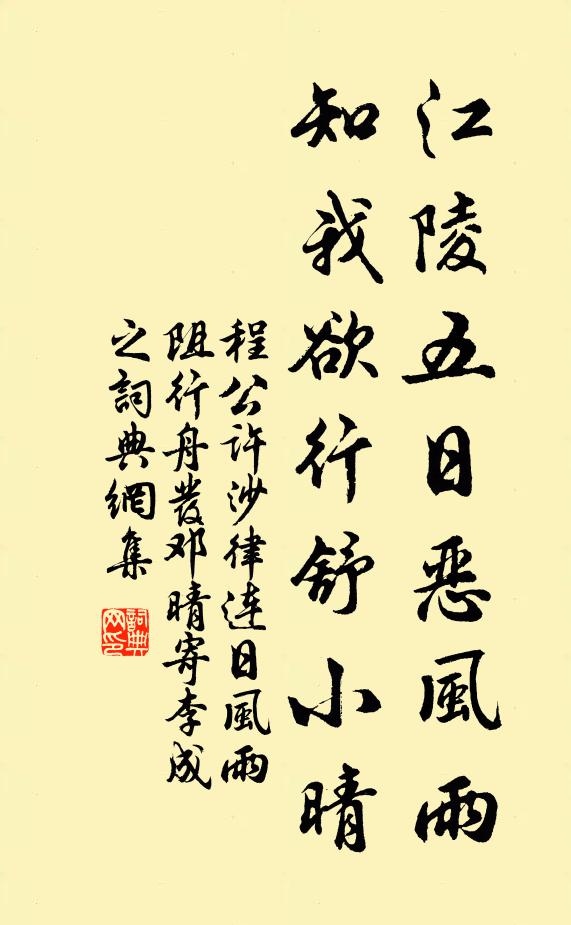 江陵五日惡風雨
知我欲行舒小晴
程公许沙律连日風雨
阻行舟發邓晴寄李成
之詞典網集
詞典
网印